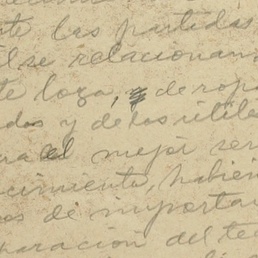 te las partidas
l se relacionan
te loza, y de ropa
dos y de los útile
ara el mejor ser
cimiento, habien
os de importan
paración del te